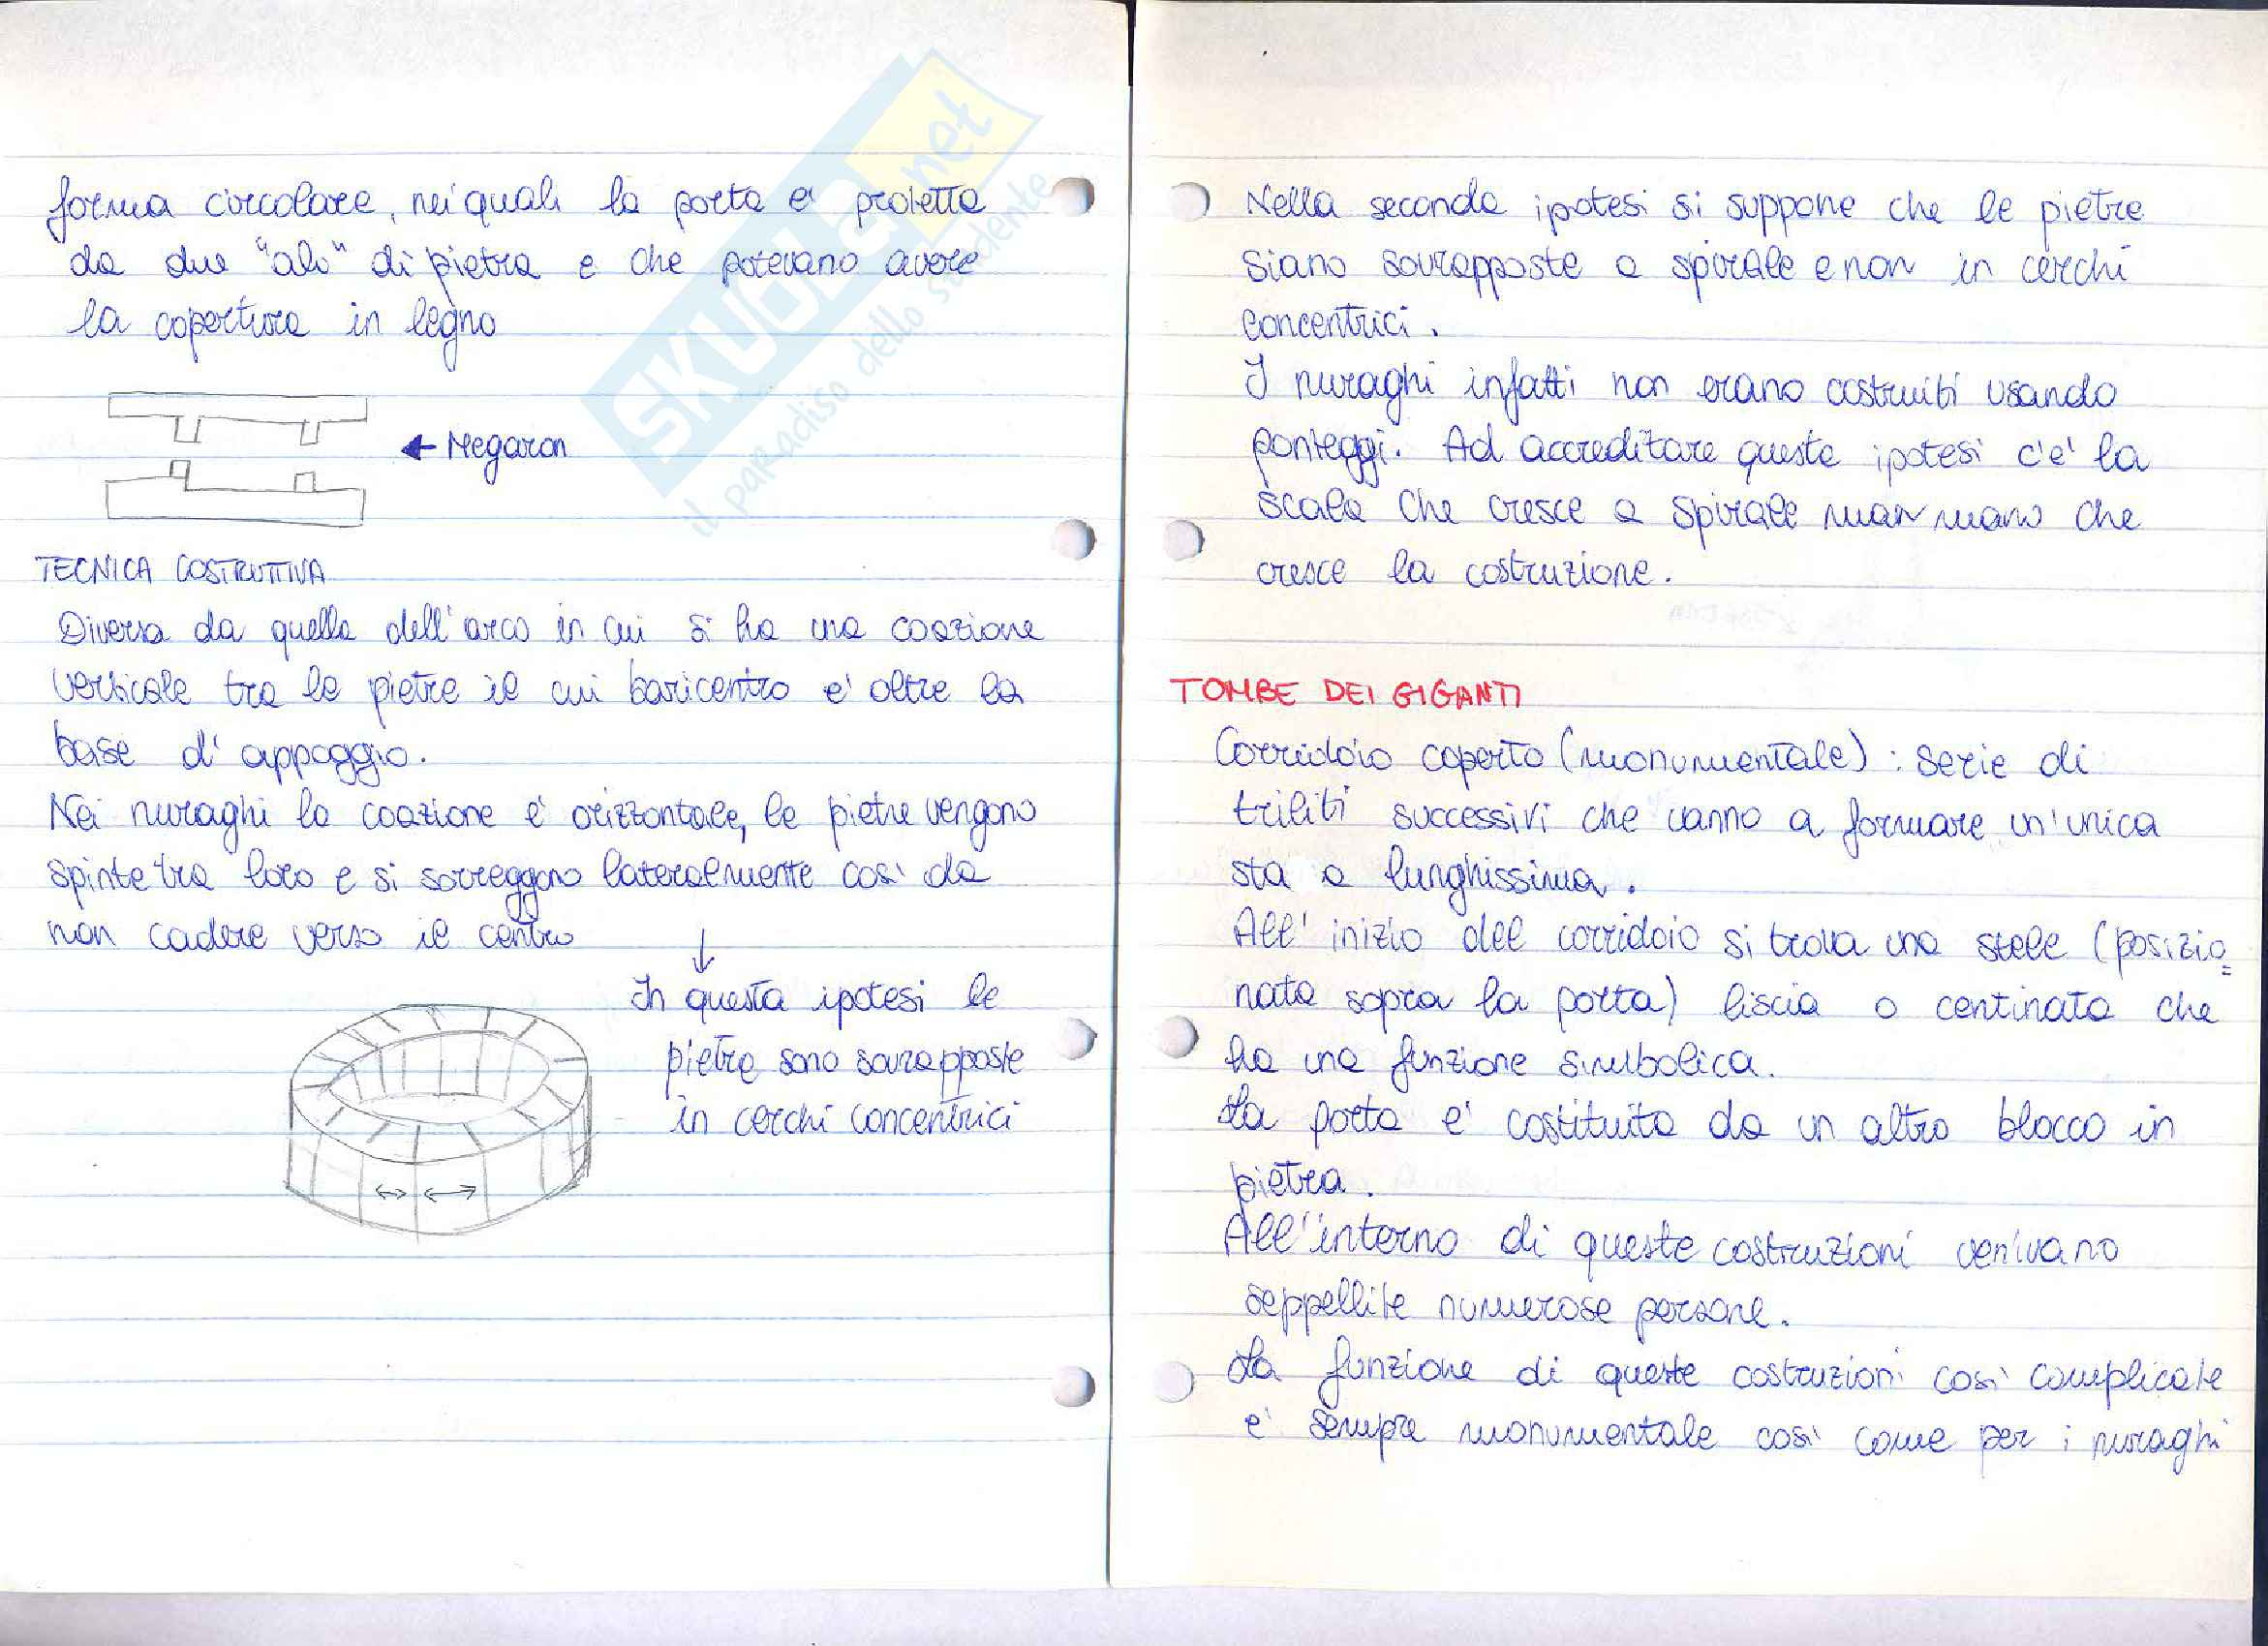 forma circolare, nei quali la porta e' protetta
da due "ali" di pietra e che potevano avere
la copertura in legno
← Megaron
TECNICA COSTRUTTIVA
Diversa da quella dell'arco in cui si ha una coazione
verticale tra le pietre il cui baricentro e' oltre la
base d'appoggio.
Nei nuraghi la coazione e' orizzontale, le pietre vengono
spinte tra loro e si sorreggono lateralmente così da
non cadere verso il centro
↓
In questa ipotesi le
pietre sono sovrapposte
in cerchi concentrici
Nella seconda ipotesi si suppone che le pietre
siano sovrapposte a spirale e non in cerchi
concentrici.
I nuraghi infatti non erano costruiti usando
ponteggi. Ad accreditare queste ipotesi c'e' la
scala che cresce a spirale man mano che
cresce la costruzione.
TOMBE DEI GIGANTI
Corridoio coperto (monumentale) : serie di
triliti successivi che vanno a formare un'unica
sta a lunghissima.
All' inizio del corridoio si trova una stele (posizio=
nata sopra la porta) liscia o centinata che
ha una funzione simbolica.
La porta e' costituita da un altro blocco in
pietra.
All'interno di queste costruzioni venivano
seppellite numerose persone.
La funzione di queste costruzioni così complicate
e' sempre monumentale così come per i nuraghi
SKUOLA.net
il paradiso dello studente